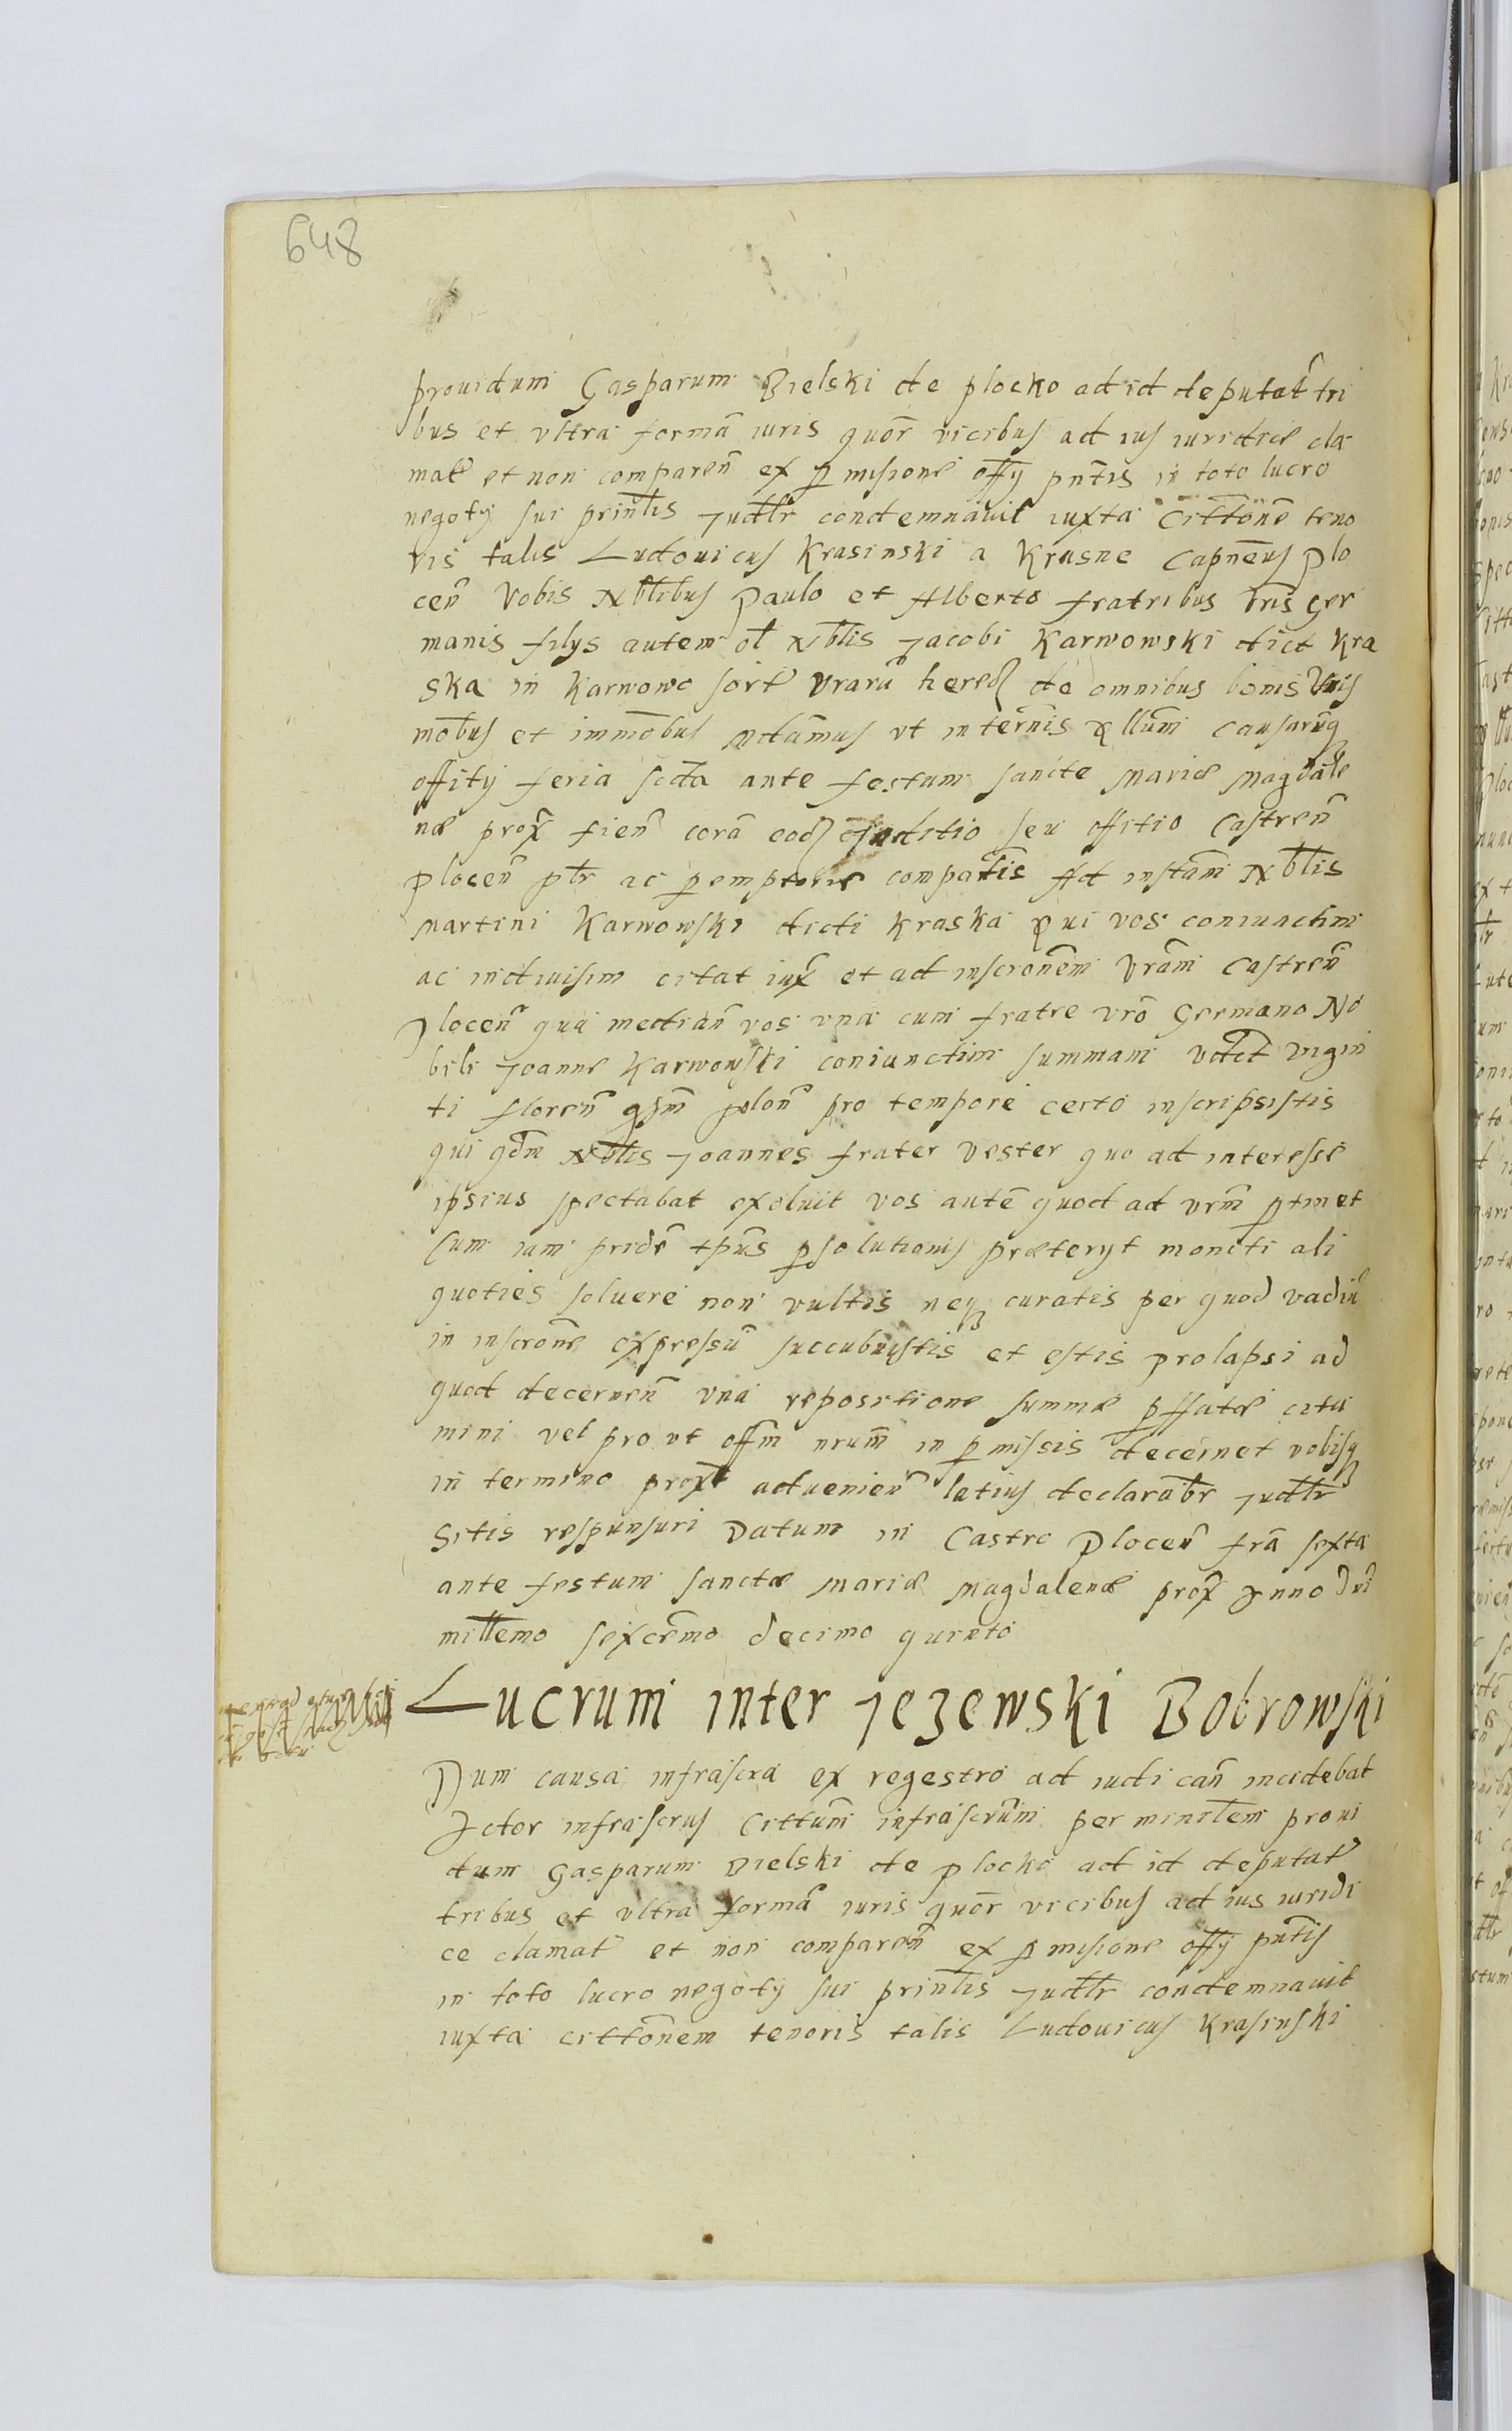 648
prouidum Gasparum Bielski de plocko ad id deputat̃ tri
bus et vltra formã iuris quor̃ vicibus ad ius iuridicę cla
mat̃ et non comparen̄ ex p̱misione offy pn̄tis in toto lucro
negoty sui prin̄lis Judtr̄ condemnauit iuxta Cittōnē teno
ris talis Ludouicus Krasinski a Krasne Capn̄eus Plo
cen̄ Vobis Nb̄libus Paulo et Alberto fratribus īris ger
manis filys autem ol̄ Nb̄lis Jacobi Karwowski dict Kra
ska in Karwowo sort̃ vrarũ hered de omnibus bonis vris
mōbus et immōbus mdāmus vt in ter̄nis q̄llum̄ causarũq
offity feria scda ante festum sancte Mariæ Magdale
næ prox̃ fien̄ corã eod Juditio seu offitio Castren̄
Plocen̄ ptr̄ ac p̱emptorie compātis Ad instan̄ Nb̄lis
Martini Karwowski dicti Kraska qui vos coniunctim
ac indiuisim citat iux̃ et ad inscrōnem vrām Castren̄
Plocen̄ qua median̄ vos vna cum fratre vr̄o Germano No
bili Joanne Karwowski coniunctim summam videt vigin
ti floren̄ polon̄ pro tempore certo inscripsistis
qui qd̄m Nb̄lis Joannes frater vester quo ad interesse
ipsius spectabat exoluit vos autē quod ad vrm̄ p̱tinet
Cum iam pridē tp̄us p̱solutionis præteryt moniti ali
quoties soluere non vultis neq curatis per quod vadiũ
in inscrōne expressũ succubuistis et estis prolapsi ad
quod decernen̄ vna repositione summæ p̱ffatæ cita
mini vel pro vt offm̄ nrum̄ in p̱missis decernet vobisq
in termino prox̃ aduenien̄ latius declarabr̄ Judtr̄
Sitis responsuri Datum in Castro Plocen̄ frã sexta
ante festum sanctæ Mariæ Magdalenæ prox̃ Anno Dni
millemo sexcēmo decimo quinto
Lucrum inter Jezewski Bobrowski
Dum causa infrascra ex regestro ad iudican̄ incidebat
Actor infrascrus Cittum̄ infrascrum̄ per minr̄lem proui
dum Gasparum Bielski de plocko ad id deputat̃
tribus et vltra formã iuris quor̃ vicibus ad ius iuridi
ce clamat̃ et non comparen̄ ex p̱misione offy pn̄tis
in toto lucro negoty sui prin̄lis Judtr̄ condemnauit
iuxta cittōnem tenoris talis Ludouicus Krasinski